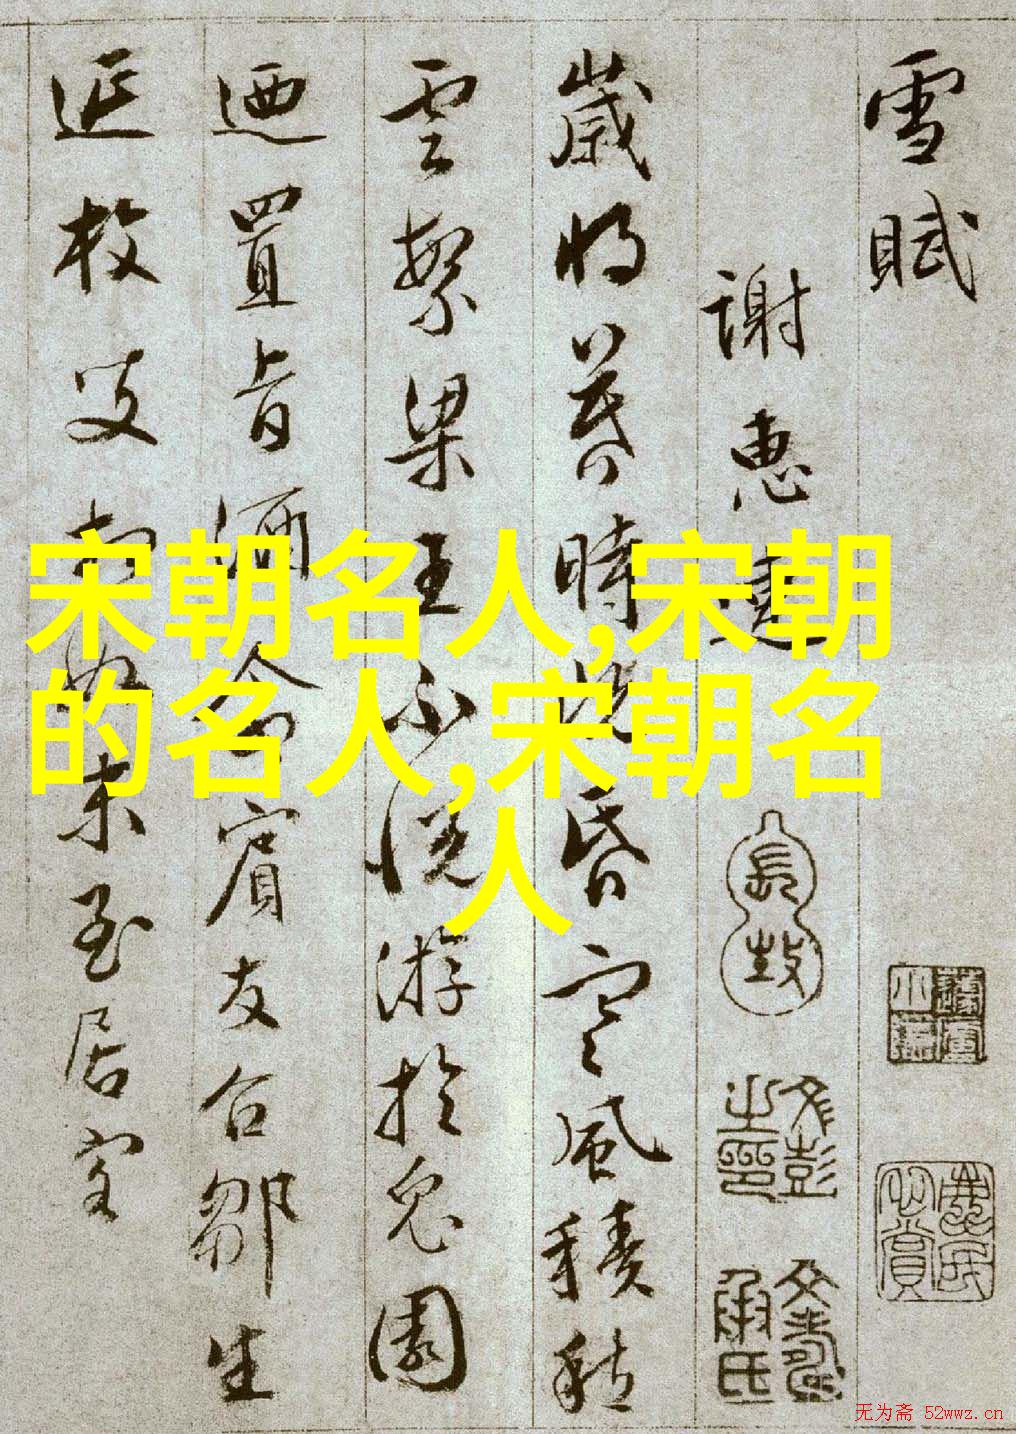 雪賦
謝惠連
歲將暮時既昏寒風積愁
雲繁梁王不悅游於兔園
迺置旨酒命賓友召鄒生
延枚叟相如末至居客
文彭之印
文壽承氏
宋朝名人,宋朝
的名人,宋朝名
人
无为斋 52wwz.cn